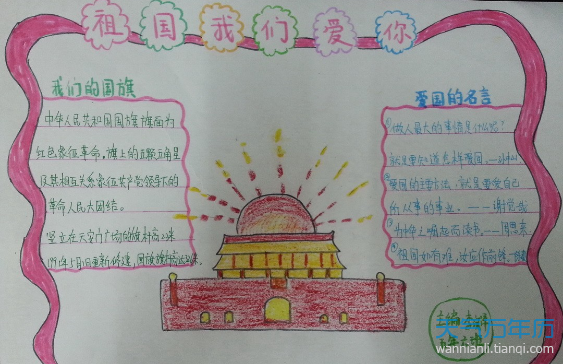 祖国我们爱你
我们的国旗
中华人民共和国国旗旗面为
红色象征革命,旗上的五颗五角星
及其相互关系象征共产党领导下的
革命人民大团结。
竖立在天安门广场的
1991年5月1日重新修建,国旗旗杆
爱国的名言
①做人最大的事情是什么呢?
就是要知道怎样爱国。
爱国的主要方法,就是要爱自己
所从事的事业。——谢觉哉
为中华之崛起而读书——周恩来
祖国如有难,汝应作前锋
天气万年历
wannianli.tianqi.com